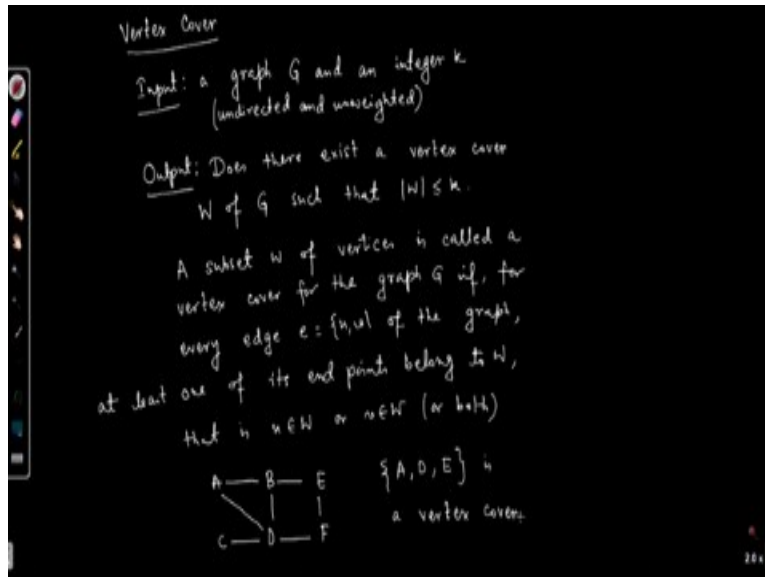 Vertex Cover
Input: a graph G and an integer k
(undirected and unweighted)
Output: Does there exist a vertex cover
W of G such that |W| ≤ k.
A subset W of vertices is called a
vertex cover for the graph G if, for
every edge e = {u,v} of the graph,
at least one of its end points belong to W,
that is u ∈ W or v ∈ W (or both)
A B E {A, D, E} is
a vertex cover.
C D F
2.0 x